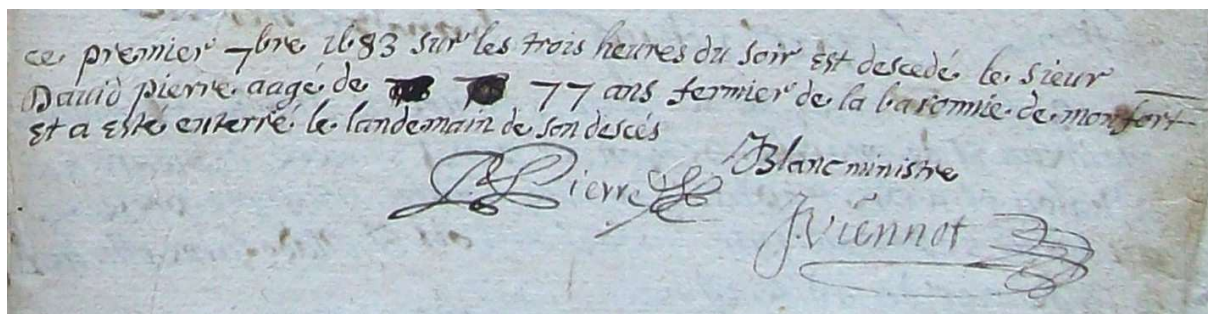 ce premier 7bre 1683 sur les trois heures du soir est descedé le sieur
David pierre aagé de 77 ans fermier de la baronnie de monfort
Et a esté enterré le landemain de son descés
Blanc ministre
Pierre
J. Viennot